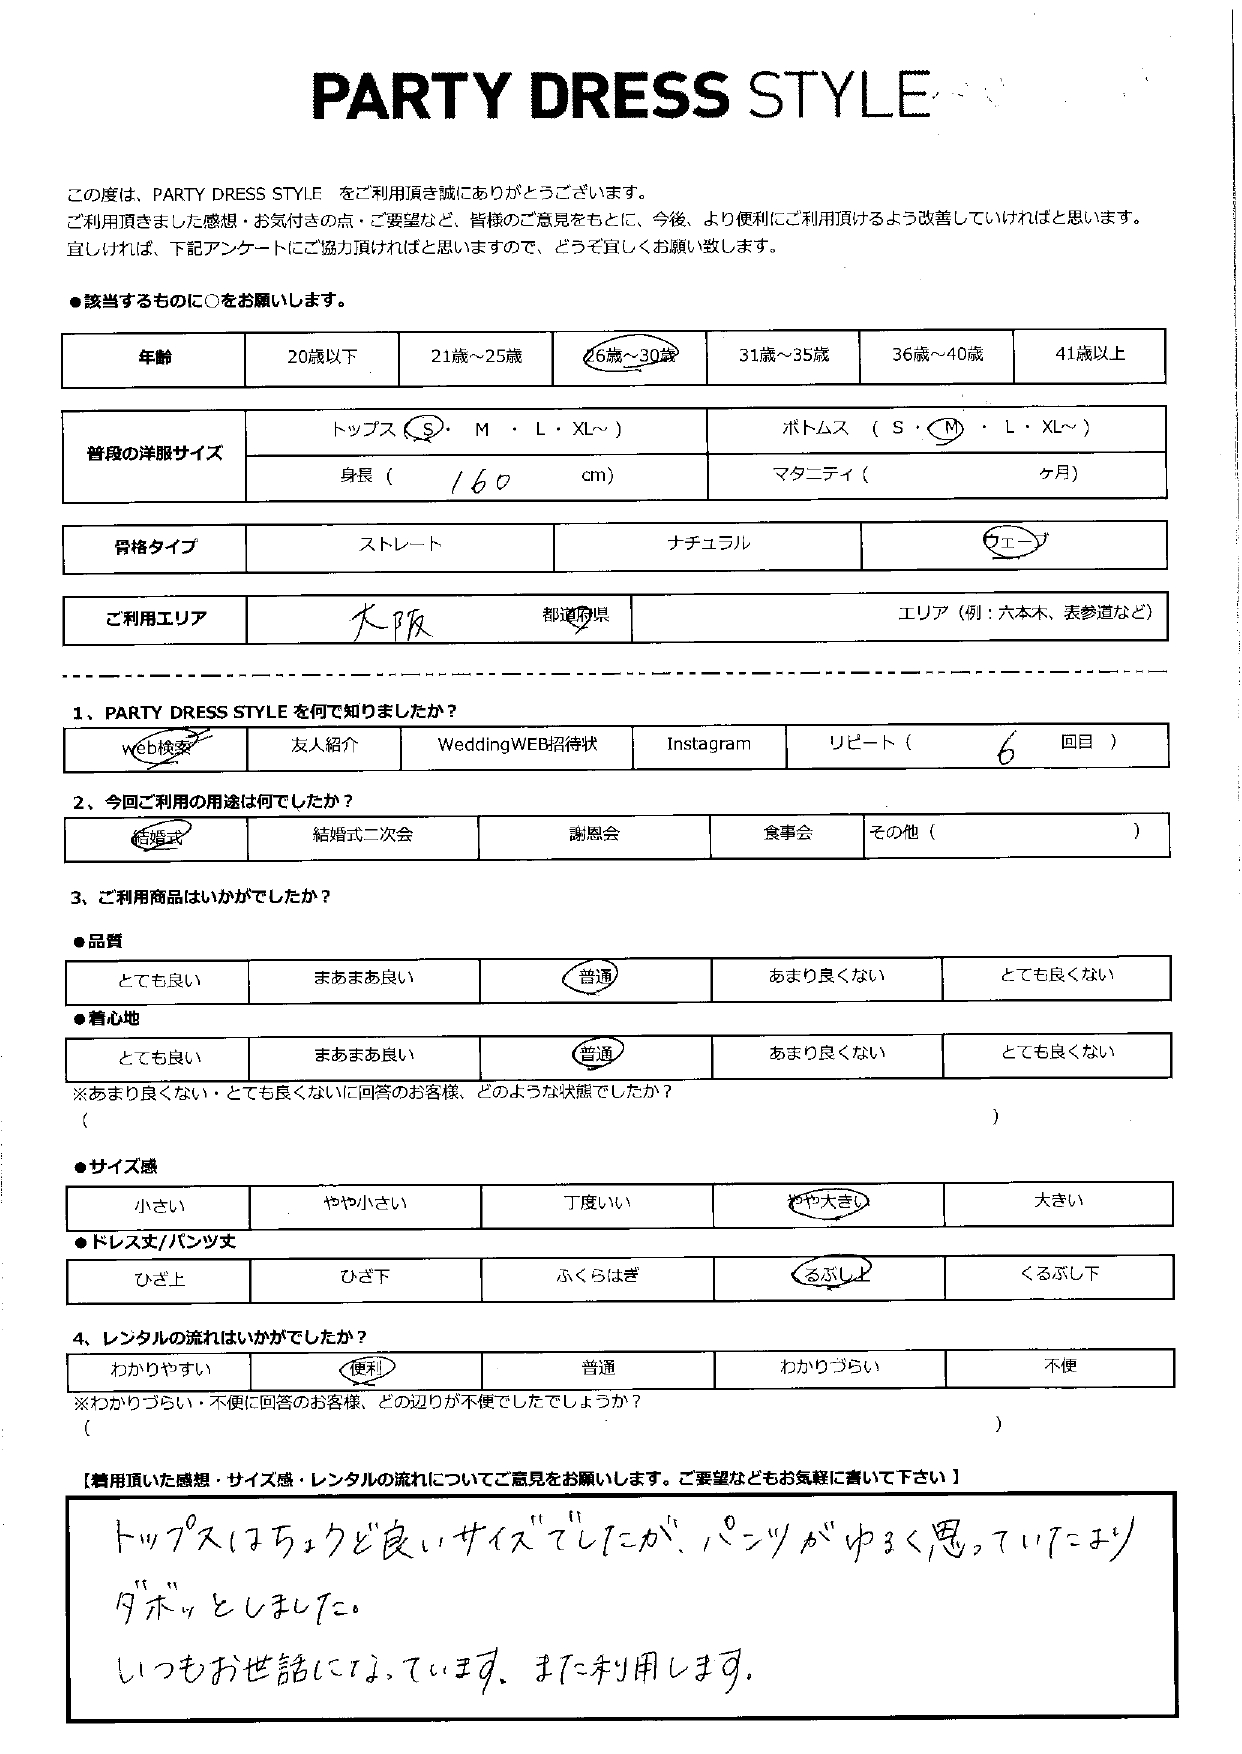 PARTY DRESS STYLE
この度は、PARTY DRESS STYLE をご利用頂き誠にありがとうございます。
ご利用頂きました感想・お気付きの点・ご要望など、皆様のご意見をもとに、今後、より便利にご利用頂けるよう改善していければと思います。
宜しければ、下記アンケートにご協力頂ければと思いますので、どうぞ宜しくお願い致します。
●該当するものに○をお願いします。
年齢 20歳以下 21歳～25歳 26歳～30歳 31歳～35歳 36歳～40歳 41歳以上
普段の洋服サイズ
トップス ( S ・ M ・ L ・ XL～ ) ボトムス ( S ・ M ・ L ・ XL～ )
身長 ( 160 cm) マタニティ ( ヶ月)
骨格タイプ ストレート ナチュラル ウェーブ
ご利用エリア 大阪 都道府県 エリア（例：六本木、表参道など）
1、PARTY DRESS STYLE を何で知りましたか？
web検索 友人紹介 WeddingWEB招待状 Instagram リピート ( 6 回目 )
2、今回ご利用の用途は何でしたか？
結婚式 結婚式二次会 謝恩会 食事会 その他 ( )
3、ご利用商品はいかがでしたか？
●品質
とても良い まあまあ良い 普通 あまり良くない とても良くない
●着心地
とても良い まあまあ良い 普通 あまり良くない とても良くない
※あまり良くない・とても良くないに回答のお客様、どのような状態でしたか？
( )
●サイズ感
小さい やや小さい 丁度いい やや大きい 大きい
●ドレス丈/パンツ丈
ひざ上 ひざ下 ふくらはぎ くるぶし上 くるぶし下
4、レンタルの流れはいかがでしたか？
わかりやすい 便利 普通 わかりづらい 不便
※わかりづらい・不便に回答のお客様、どの辺りが不便でしたでしょうか？
( )
【着用頂いた感想・サイズ感・レンタルの流れについてご意見をお願いします。ご要望などもお気軽に書いて下さい 】
トップスはちょうど良いサイズでしたが、パンツがゆるく思っていたより
ダボッとしました。
いつもお世話になっています、また利用します。